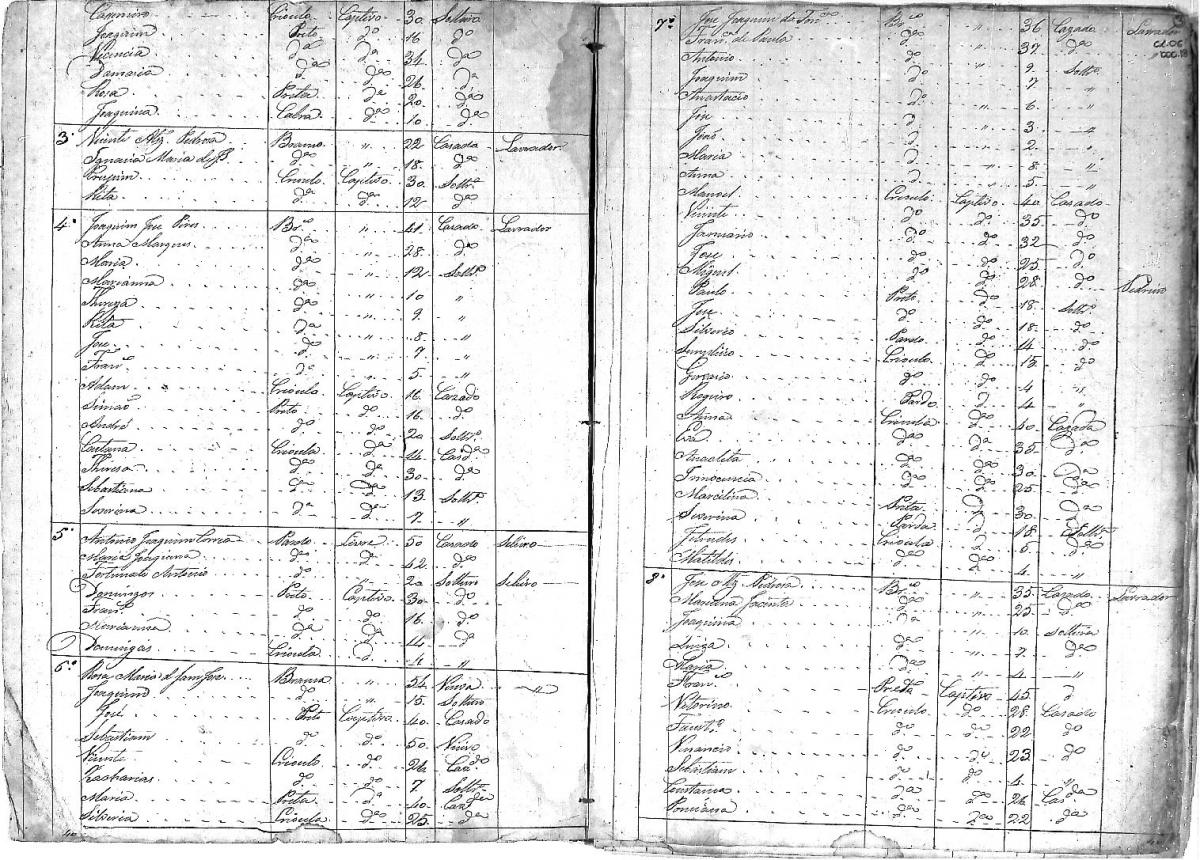 Casemiro Crioulo Captivo 30 Soltro
Joaquim Preto dº 16 dº
Vicencia dª dª 34 dª
Damazia dª dº 26 dª
Rosa Preta dª 20 dª
Joaquina Cabra dª 10 dª
3º Vicente Alz. Pedroza Branco " 22 Casado Lavrador
Ignacia Maria de J. dª " 18 dª
Crioulo Captivo 30 Soltrº
Rita dª dª 12 dª
4º Joaquim Jose Pires Brco " 41 Casado Lavrador
Anna Marques dª " 28 dª
Maria dª " 12 Soltrª
Marianna dª " 10 "
Thereza dª " 9 "
Rita dª
Jose dº " 8 "
Franco dº " 7 "
Adam " 5 "
Simaõ Crioulo Captivo 16 Cazado
André Preto dº 16 dº
Caetana dº 20 Soltrº
Thereza Crioula dª 14 Casdª
Sebastiana dª dª 30 dª
Severina dª dª 13 Soltrª
7 "
5º Antonio Joaquim Correa Pardo Livre 50 Casado Seleiro
Maria Joaquina dª dª 42 dª
Fortunato Antonio dº " 20 Soltro Seleiro
Domingos Preto Captivo 30 dº
Franco dº dº 16 dº
Marianna dª dª 14 dª
Domingas Crioula dª 4 "
6º Rosa Maria de Sam Jose Branca " 54 Viuva "
Joaquim dº " 15 Soltro
José Preto Captivo 40 Casado
Sebastiam dº dº 50 Viuvo
Vicente Crioulo dº 26 Cazdº
Zacharias dº dº 7 Soltrº
Maria Preta dª 40 Cazdª
Silveria Crioula dª 25 dª
7º Jose Joaquim do Brco " 36 Cazado Lavrador
Franca de Paula dª " 37 dª
Antonio dº " 9 Soltrº
Joaquim dº " 7 "
Anastacio dº " 6 "
Jose dº " 3 "
José dº " 2 "
Maria dª " 8 "
Anna dª " 5 "
Manoel Crioulo Captivo 40 Casado
Vicente dº dº 35 dº
Januario dº dº 32 dº
Jose dº dº 25 dº
Miguel dº dº 28 dº Pedreiro
Paulo Preto dº 18 Soltrº
Jose dº dº 18 dº
Silverio Pardo dº 14 dº
Crioulo dº 15 dº
Gervazio dº dº 4 "
Rogerio Pardo dº 4 "
Anna Crioula dª 40 Cazada
Eva dª dª 35 dª
Anacleta dª dª 30 dª
Innocencia dª dª 25 dª
Marcelina Preta dª 30 dª
Severina Parda dª 18 Soltrª
Crioula dª 6 dª
Matildes dª dª 4 "
8º Jose Alz. Pedroza Brco " 35 Cazado Lavrador
Mariana Jacinta dª " 25 dª
Joaquina dª " 10 Solteira
Luiza dª " 7 dª
Maria dª " 4 "
Franco Preto Captivo 45 dº
Vitorino Crioulo dº 28 Casado
Faustº dº dº 22 dº
Venancio dº dº 23 dº
Sebastiam dº dº 4 "
Constança dª dª 26 Casdª
dª dª 22 dª